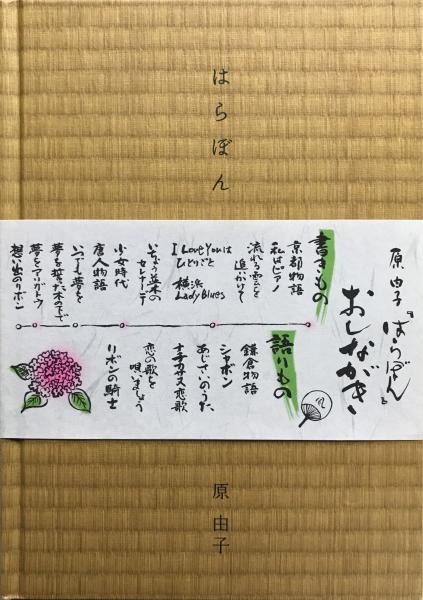 はらぼん
原由子『はらぼん』
おしながき
書きもの
京都物語
私はピアノ
流れる雲を
追いかけて
I Love Youは
ひとりごと
横浜
Lady Blues
いちょう並木の
セレナーデ
少女時代
唐人物語
いつでも夢を
夢を誓った木の下で
夢をアリガトウ
想い出のリボン
語りもの
鎌倉物語
シャボン
あじさいのうた
ナチカサス恋歌
恋の歌を
唄いましょう
リボンの騎士
原由子